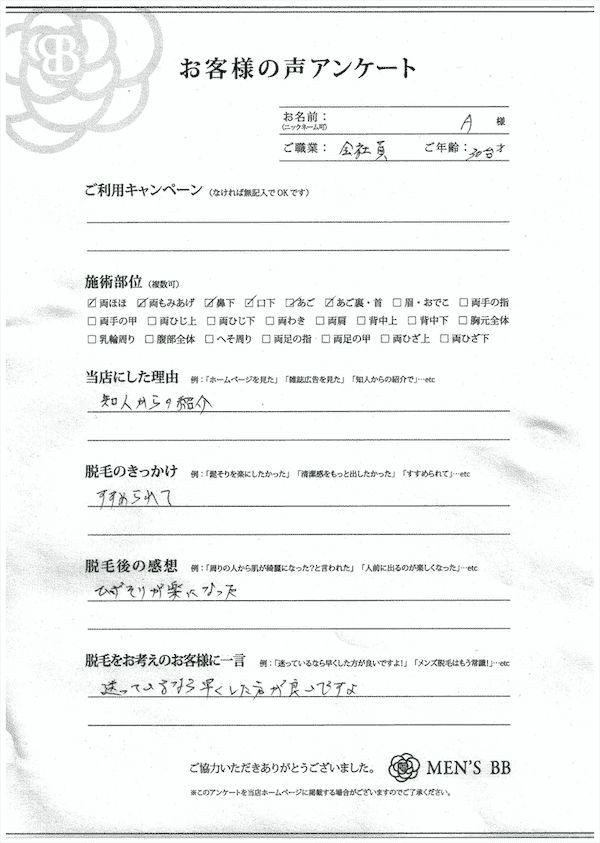 BB
お客様の声アンケート
お名前：
(ニックネーム可)
A 様
ご職業： 会社員 ご年齢：30台才
ご利用キャンペーン（なければ無記入でOKです）
施術部位（複数可）
☑両ほほ ☑両もみあげ ☑鼻下 ☑口下 ☑あご ☑あご裏・首 □眉・おでこ □両手の指
□両手の甲 □両ひじ上 □両ひじ下 □両わき □両肩 □背中上 □背中下 □胸元全体
□乳輪周り □腹部全体 □へそ周り □両足の指 □両足の甲 □両ひざ上 □両ひざ下
当店にした理由 例：「ホームページを見た」「雑誌広告を見た」「知人からの紹介で」…etc
知人からの紹介
脱毛のきっかけ 例：「髭そりを楽にしたかった」「清潔感をもっと出したかった」「すすめられて」…etc
すすめられて
脱毛後の感想 例：「周りの人から肌が綺麗になった？と言われた」「人前に出るのが楽しくなった」…etc
ひげそりが楽になった
脱毛をお考えのお客様に一言 例：「迷っているなら早くした方が良いですよ！」「メンズ脱毛はもう常識！」…etc
迷っているなら早くした方が良いですよ
ご協力いただきありがとうございました。 MEN'S BB
※このアンケートを当店ホームページに掲載する場合がございますのでご了承ください。